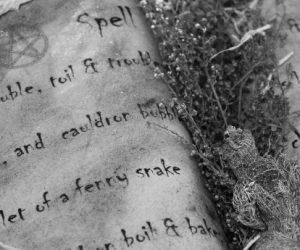 Spell
uble, toil & trouble,
, and cauldron bubble
let of a fenny snake
on boil & bak